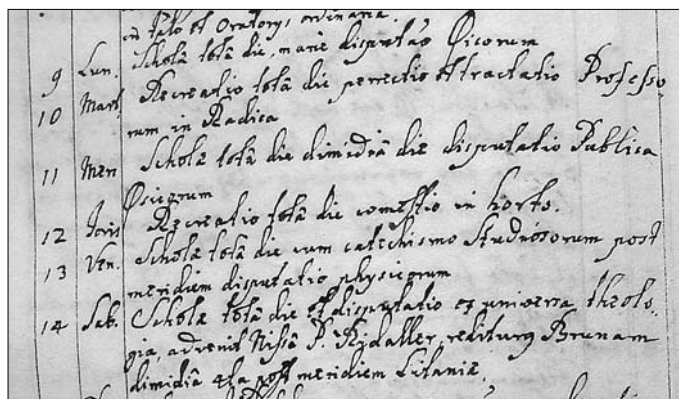 in templo et Oratorij, ordinaria.
9 Lun. Scholæ totâ die, manè disputatio
10 Mart. Recreatio totâ die et tractatio Professo-
rum in Radica
11 Mer Scholæ totâ die dimidiâ die disputatio Publica
12 Jovis Recreatio totâ die comestio in horto.
13 Ven. Scholæ totâ die cum catechismo Studiosorum post
meridiem disputatio physicorum
14 Sab. Scholæ totâ die et disputatio ex universa theolo-
gia, advenit Nissâ P. Rydaller, rediturus Brunam
dimidiâ 4ta post meridiem Litaniæ.